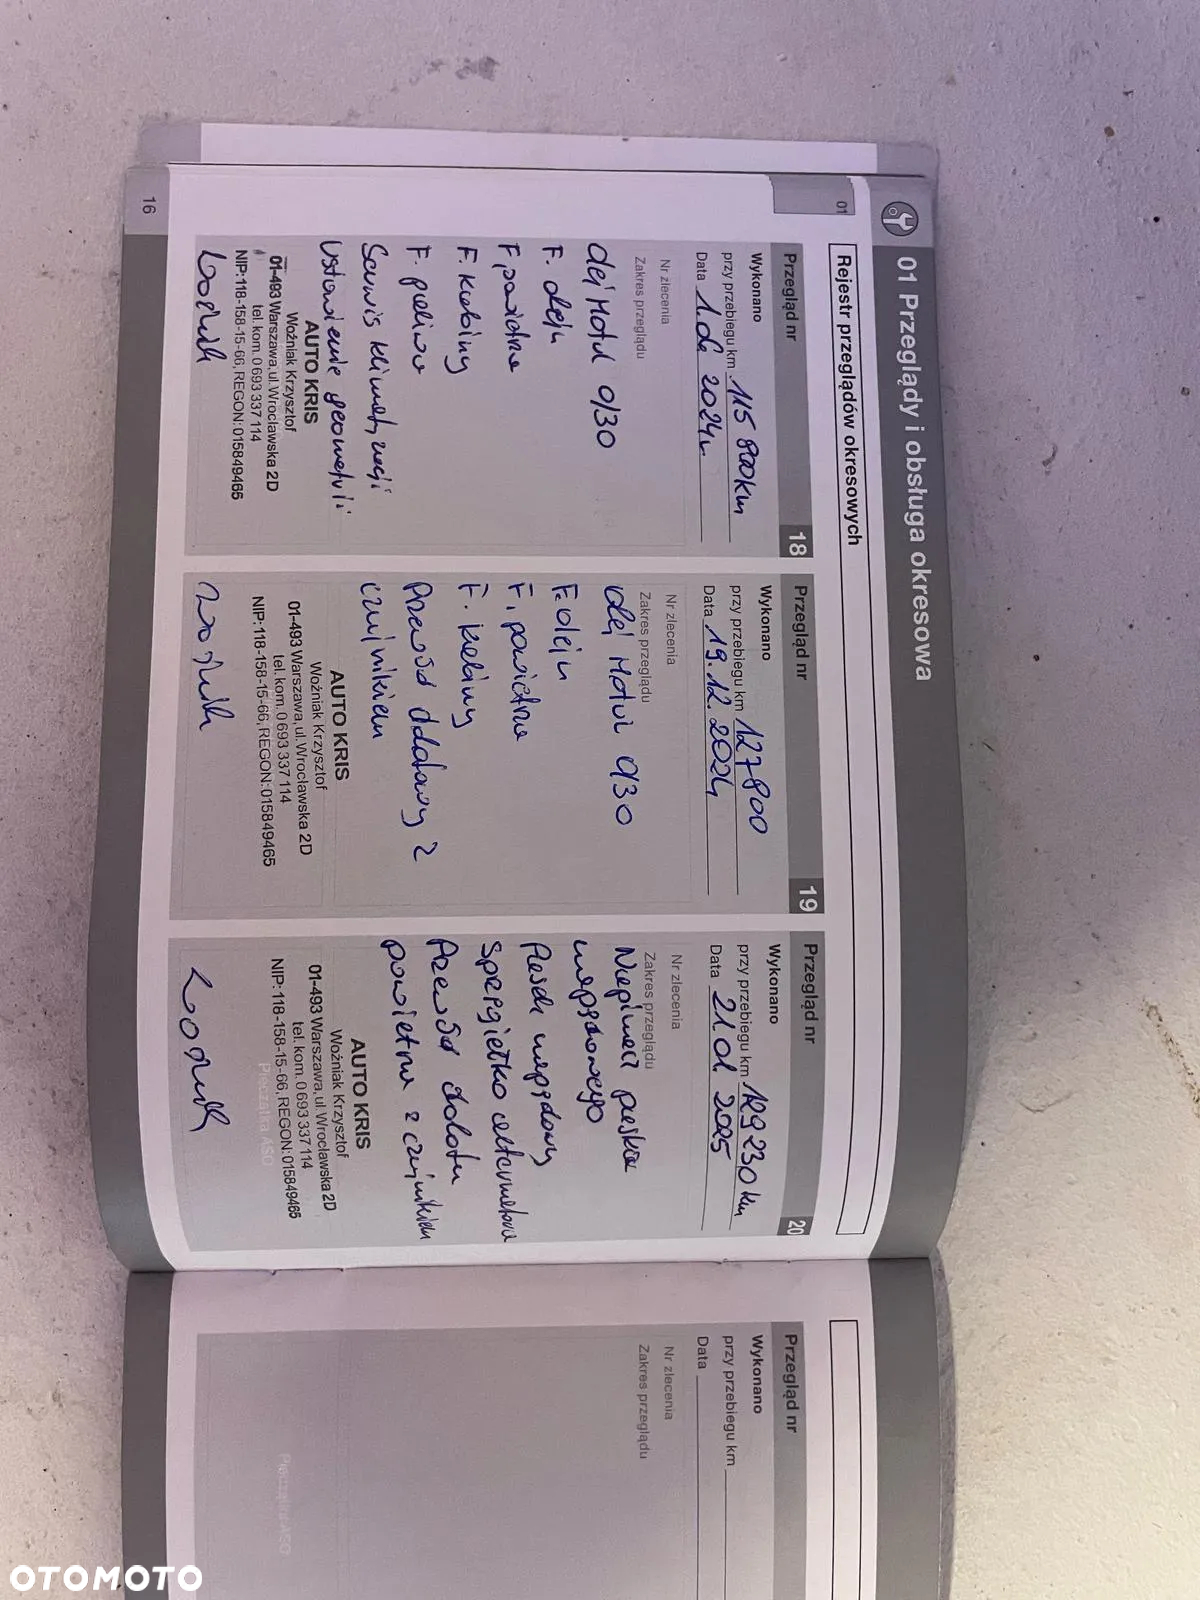 01 Przeglądy i obsługa okresowa
01
Rejestr przeglądów okresowych
Przegląd nr 18
Wykonano
przy przebiegu km 115 800km
Data 2024r
Nr zlecenia
Zakres przeglądu
olej Motul 0/30
F. oleju
F. powietrza
F. kabiny
F. paliwa
Serwis klimatyzacji
Ustawienie geometrii
AUTO KRIS
Woźniak Krzysztof
01-493 Warszawa, ul. Wrocławska 2D
tel. kom. 0 693 337 114
NIP: 118-158-15-66, REGON: 015849465
Przegląd nr 19
Wykonano
przy przebiegu km 127800
Data 19.12.2024
Nr zlecenia
Zakres przeglądu
olej Motul 0/30
F. oleju
F. powietrza
F. kabiny
Przewód dolotowy z
czujnikiem
AUTO KRIS
Woźniak Krzysztof
01-493 Warszawa, ul. Wrocławska 2D
tel. kom. 0 693 337 114
NIP: 118-158-15-66, REGON: 015849465
Przegląd nr 20
Wykonano
przy przebiegu km 129 230 km
Data 21 01 2025
Nr zlecenia
Zakres przeglądu
Napinacz paska
napędowego
Pasek napędowy
Sprzęgiełko alternatora
Przewód dolotu
powietrza z czujnikiem
AUTO KRIS
Woźniak Krzysztof
01-493 Warszawa, ul. Wrocławska 2D
tel. kom. 0 693 337 114
NIP: 118-158-15-66, REGON: 015849465
Pieczątka ASO
16
Przegląd nr
Wykonano
przy przebiegu km
Data
Nr zlecenia
Zakres przeglądu
Pieczątka ASO
OTOMOTO